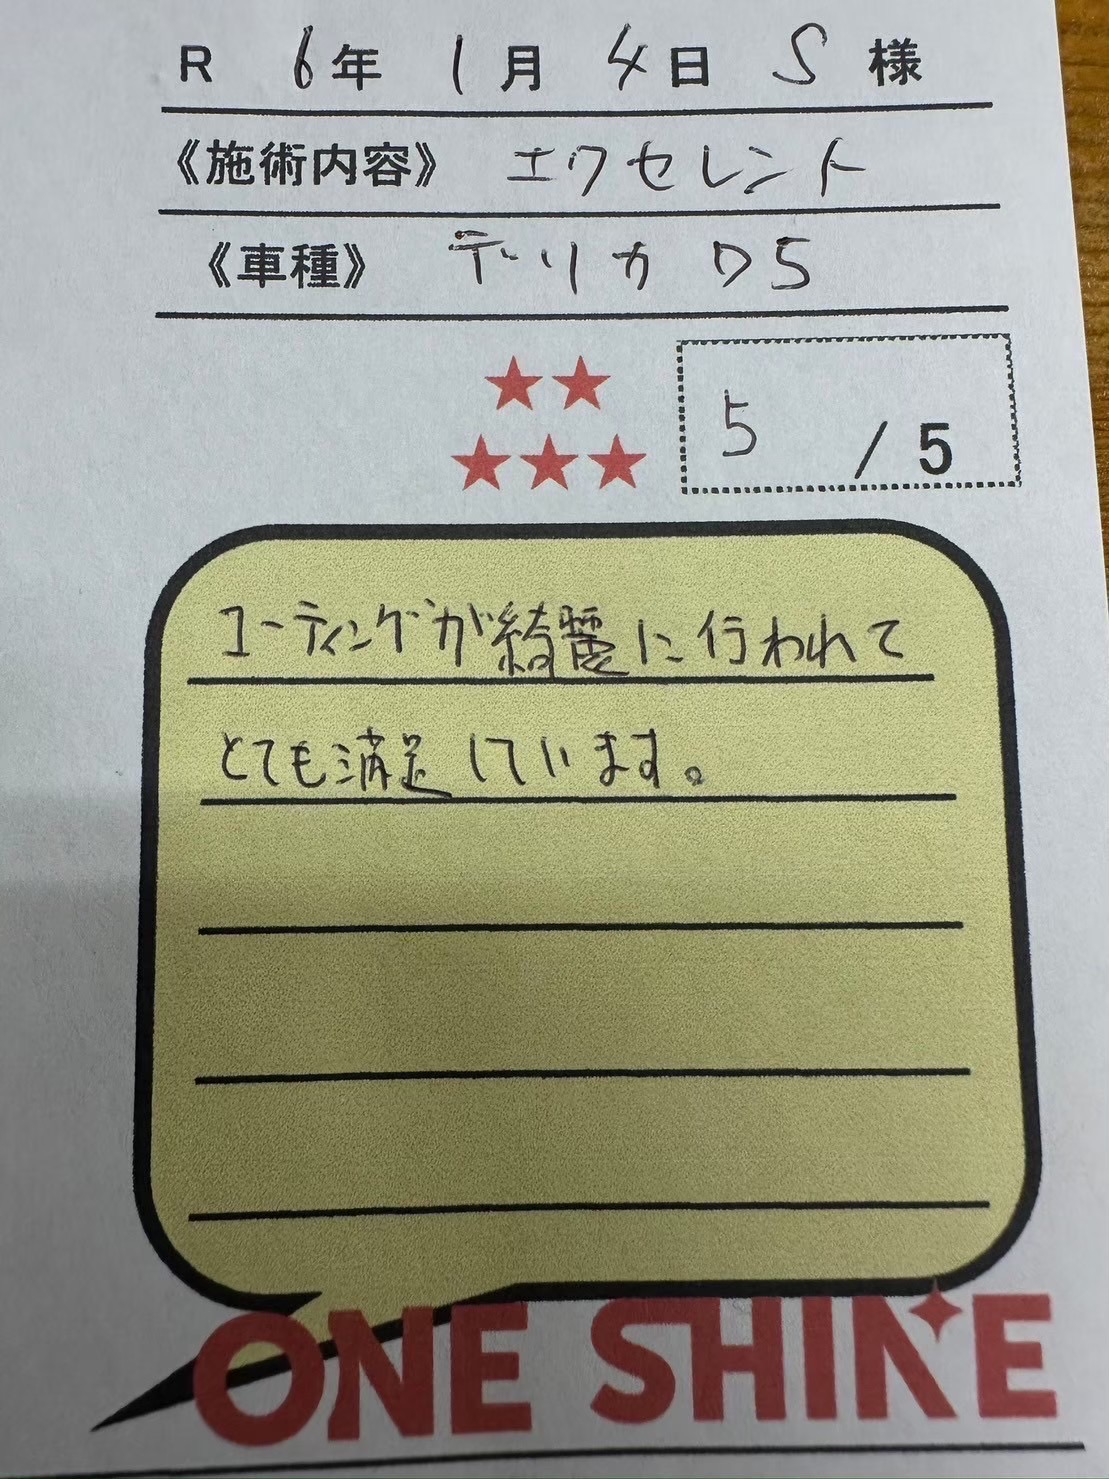 R 6年 1月 4日 S 様
《施術内容》 エクセレント
《車種》 デリカ D5
5 / 5
コーティングが綺麗に行われて
とても満足しています。
ONE SHINE